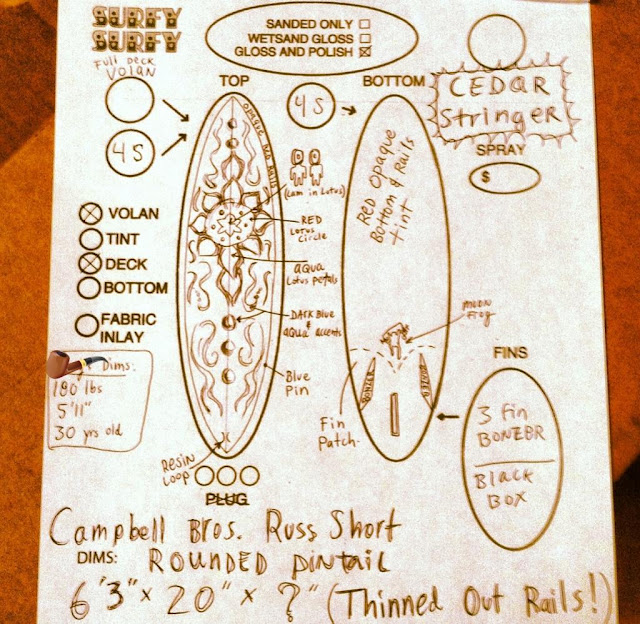 SURFY
SURFY
SANDED ONLY
WETSAND GLOSS
GLOSS AND POLISH
Full Deck
VOLAN
4S
TOP
4S
BOTTOM
CEDAR
StringER
SPRAY
$
OPAQUE RED RAILS
(Lam in Lotus)
RED
Lotus
Circle
AQUA
Lotus petals
DARK Blue
&
AQUA accents
Blue
Pin
RESIN
LOOP
Red Opaque
Bottom & Rails
tint
MOON
Frog
BONZER
BONZER
Fin
Patch
VOLAN
TINT
DECK
BOTTOM
FABRIC
INLAY
Dims:
180 lbs
5'11"
30 yrs old
FINS
3 fin
BONZER
BLACK
BOX
PLUG
Campbell Bros. Russ Short
DIMS: ROUNDED pintail
6'3" x 20" x ?" (Thinned Out Rails!)